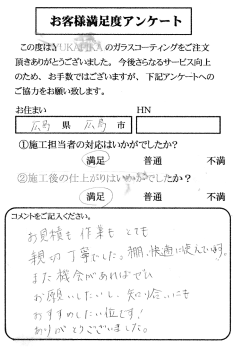 お客様満足度アンケート
この度はYUKAPIKAのガラスコーティングをご注文
頂きありがとうございました。今後さらなるサービス向上
のため、お手数ではございますが、下記アンケートへの
ご協力をお願い致します。
お住まい HN
広島 県 広島 市
①施工担当者の対応はいかがでしたか?
満足 普通 不満
②施工後の仕上がりはいかがでしたか?
満足 普通 不満
コメントをご記入ください。
お見積も 作業も とても
親切 丁寧でした。 快適に使えています。
また 機会があればぜひ
お願いしたいし、知り合いにも
おすすめしたい位です!
ありがとうございました。